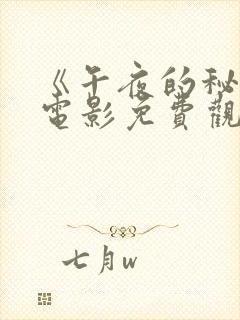 《午夜的秘
電影免費觀
七月w